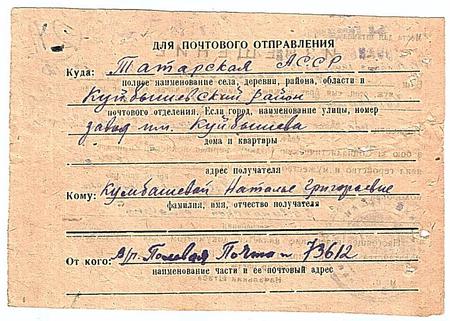 ДЛЯ ПОЧТОВОГО ОТПРАВЛЕНИЯ
Куда: Татарская АССР
полное наименование села, деревни, района, области и
Куйбышевский район
почтового отделения. Если город, наименование улицы, номер
завод им. Куйбышева
дома и квартиры
адрес получателя
Кому: Кумбашевой Наталье Григорьевне
фамилия, имя, отчество получателя
От кого: В/ч. Полевая Почта № 73612
наименование части и ее почтовый адрес